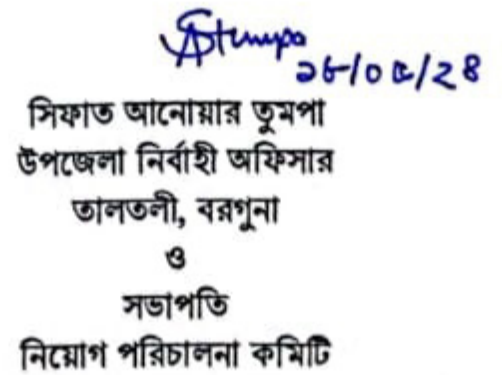 সিফাত আনোয়ার তুমপা
উপজেলা নির্বাহী অফিসার
তালতলী, বরগুনা
ও
সভাপতি
নিয়োগ পরিচালনা কমিটি